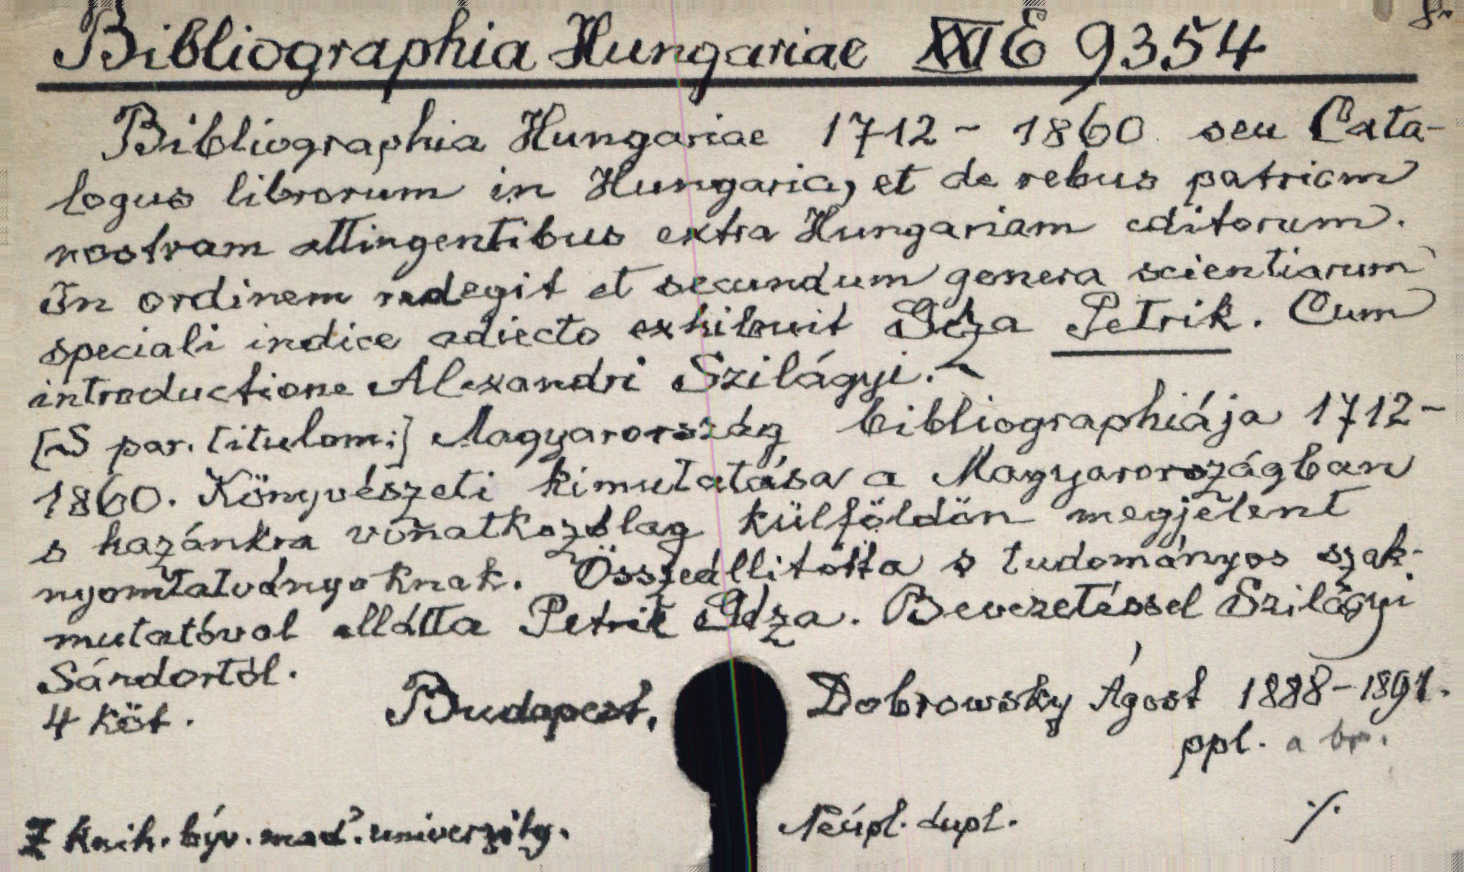 8°
Bibliographia Hungariae XXI E 9354
Bibliographia Hungariae 1712 - 1860 seu Cata-
logus librorum in Hungaria, et de rebus patriam
nostram attingentibus extra Hungariam editorum.
In ordinem redegit et secundum genera scientiarum
speciali indice adiecto exhibuit Géza Petrik. Cum
introductione Alexandri Szilágyi. -
[S par. titulom:] Magyarország bibliographiája 1712-
1860. Könyvészeti kimutatása a Magyarországban
s hazánkra vonatkozólag külföldön megjelent
nyomtatványoknak. Összeállította s tudományos szak-
mutatóval ellátta Petrik Géza. Bevezetéssel Szilágyi
Sándortól.
4 köt. Budapest, Dobrowsky Ágost 1888-1891.
ppl. a br.
Z knih. býv. maď. univerzity. Neúpl. dupl. ./.